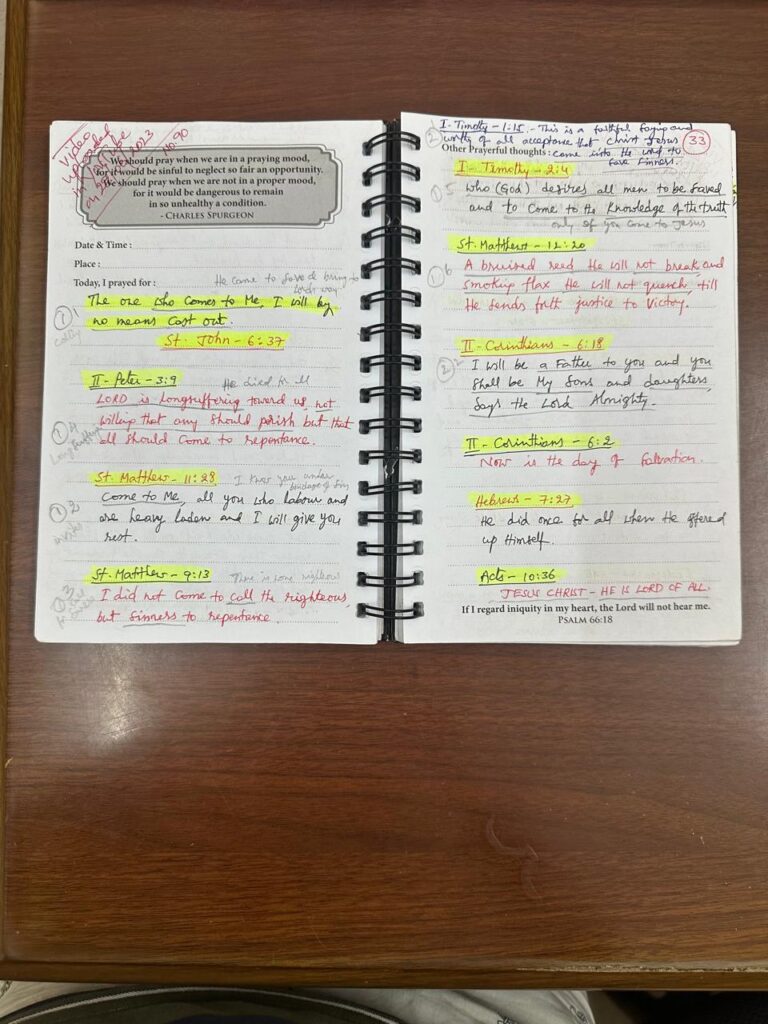 Video
uploaded
in
2023
No. 90
We should pray when we are in a praying mood,
for it would be sinful to neglect so fair an opportunity.
We should pray when we are not in a proper mood,
for it would be dangerous to remain
in so unhealthy a condition.
- CHARLES SPURGEON
Date & Time :
Place :
Today, I prayed for :
He came to save & bring to
Lord's way
① 1
The one who comes to Me, I will by
no means cast out.
St. John - 6:37
II - Peter - 3:9
He died for all
LORD is Longsuffering toward us, not
willing that any should perish but that
① 4
all should come to repentance.
Longsuffering
St. Matthew - 11:28
I know you under
bondage of sin
Come to Me, all you who labour and
① 2
are heavy laden and I will give you
invite
rest.
St. Matthew - 9:13
There is none righteous
① 3
I did not come to call the righteous,
but sinners to repentance.
I - Timothy - 1:15 - This is a faithful saying and
② worthy of all acceptance that Christ Jesus
33
Other Prayerful thoughts : came into the world to
save sinners.
I - Timothy - 2:4
① 5 who (God) desires all men to be saved
and to come to the knowledge of the truth
only if you come to Jesus
St. Matthew - 12:20
① 6 A bruised reed He will not break and
smoking flax He will not quench, till
He sends forth justice to victory.
II - Corinthians - 6:18
② 2 I will be a Father to you and you
shall be My sons and daughters,
says the Lord Almighty.
II - Corinthians - 6:2
Now is the day of salvation.
Hebrews - 7:27
He did once for all when He offered
up Himself.
Acts - 10:36
JESUS CHRIST - HE IS LORD OF ALL.
If I regard iniquity in my heart, the Lord will not hear me.
PSALM 66:18